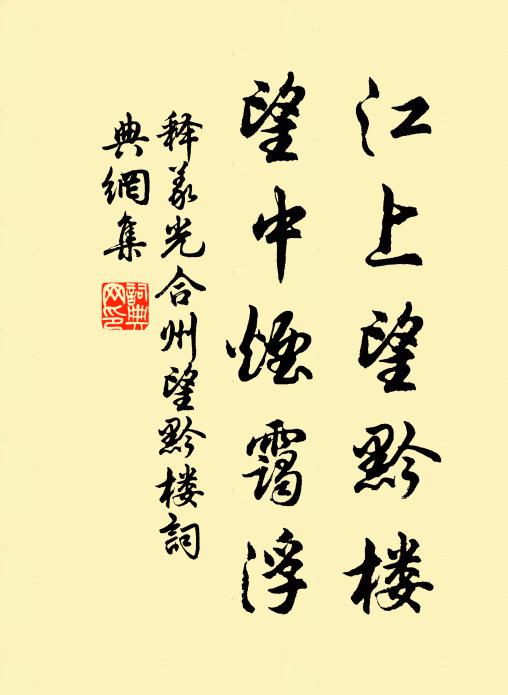 江上望黔楼
望中烟霭浮
释义光合州望黔楼词
典網集
詞典
网印